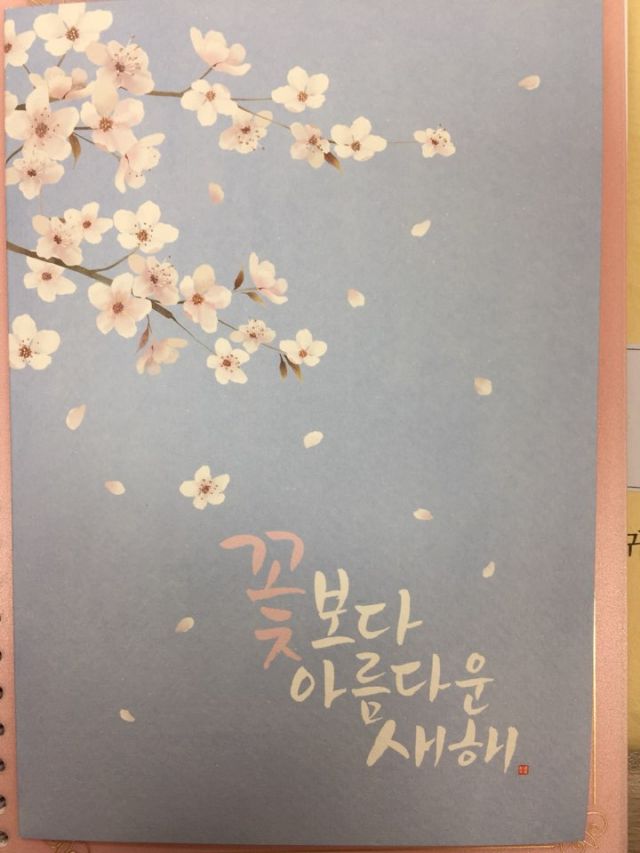 꽃보다
아름다운
새해